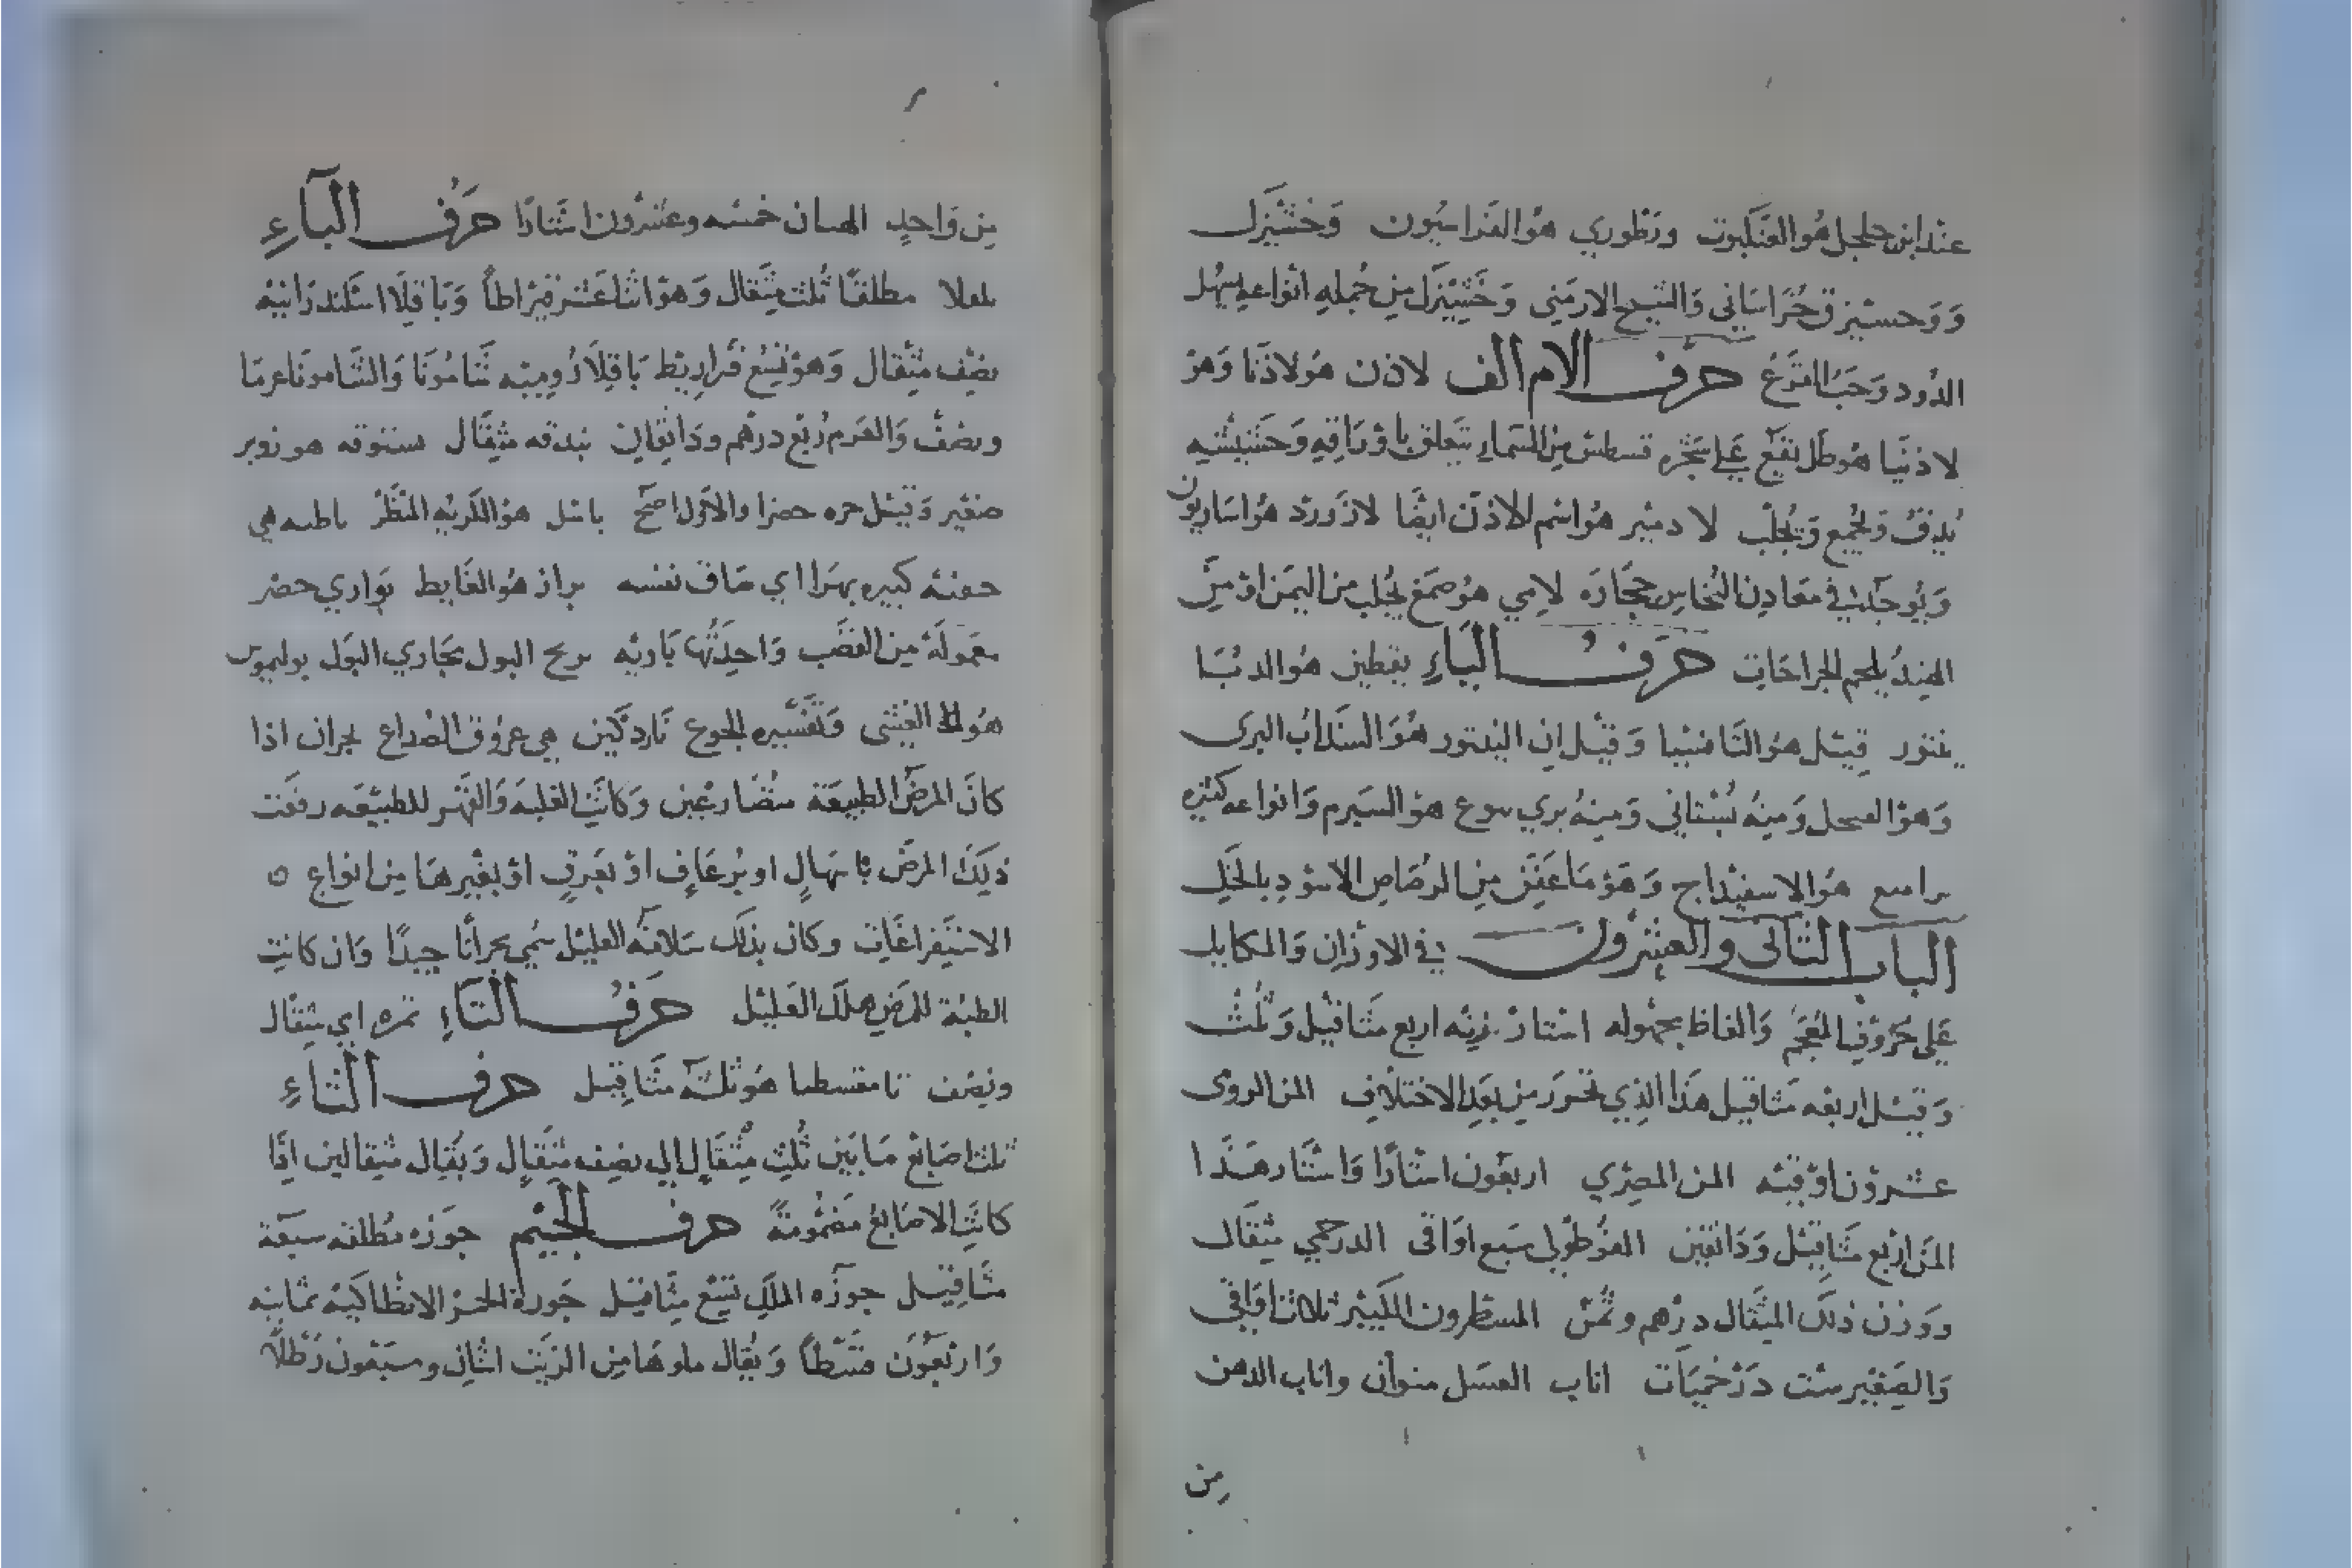 عند ابن جلجل هو العنكبوت ورطوري هو الفراسيون وخشيزك
ووحسيزق خراساني والشيح الارمني وخشيزك من جمله انواعه يسهل
الدود وحب القرع حرف الام الف لاذن هو لاذنا وهو
لاذنيا هو طل يقع على شجره قسطس من السماء يتعلق باوراقه وحشيشيه
يدق ويجمع ويجلب لا دمير هو اسم للاذن ايضا لازورد هو اساريون
ويوجد في معادن النحاس حجاره لامي هو صمغ يجلب من اليمن او من
الهند يلحم الجراحات حرف الياء يقطين هو الدبا
ينتور قيل هو التافسيا وقيل ان الينتور هو السذاب البري
وهو الفيجل ومنه بستاني ومنه بري يتوع هو السيرم وانواعه كثيره
هو الاسفيداج وهو ما عفن من الرصاص الاسود بالخل
الباب الثاني والعشرون في الاوزان والمكايل
على حروف المعجم والفاظ مجهوله استار زنته اربع مثاقيل وثلث
وقيل اربعه مثاقيل هذا الذي تحرر من بعد الاختلاف المن الروي
عشرون اوقيه المن المصري اربعون استارا واستار هذا
المن اربع مثاقيل ودانقين القوطولي سبع اواقي الدرخمي مثقال
ووزن ذلك المثقال درهم وثمن المسطرون الكبير ثلاث اواقي
والصغير ست درخميات اناب العسل منوان واناب الدهن
من
من واحد خمسه وعشرون استارا حرف الباء
مطلقا ثلث مثقال وهو اثنا عشر قيراطا وباقلا اسكندرانيه
نصف مثقال وهو تسع قراريط باقلا روميه ثنامونا والشامونا عرما
ونصف والغرم ربع درهم ودانقان بندقه مثقال ستوقه هو زوبر
صغير وقيل جره خضرا والاول اصح باسل هو الكريه المنظر باطيه هي
حفنه كبيره بهرا اي ضاق نفسه براز هو الغايط بواري حصر
معموله من القصب واحدتها باريه بربخ البول مجاري البول بوليموس
هو الغشى وتفسيره الجوع باردكين هي عروق الصداع بحران اذا
كان المرض الطبيعة متضارعين وكانت الغلبه والقهر للطبيعه رفعت
ذلك المرض باسهال او برعاف او بعرق او بغيرها من انواع
الاستفراغات وكان بذلك سلامة العليل سمي بحرانا جيدا وان كانت
الطبة للمرض هلك العليل حرف التاء تمره اي مثقال
ونصف تا مقسطيا هو ثلثة مثاقيل حرف الثاء
ثلث اصابع ما بين ثلث مثقال الى نصف مثقال ويقال مثقالين اذا
كانت الاصابع مضمومة حرف الجيم جوزه مطلقه سبعة
مثاقيل جوزه الملك تسع مثاقيل جورة الحر الانطاكيه ثمانيه
واربعون قسطا ويقال ملوها من الزيت اثنان وسبعون رطلا